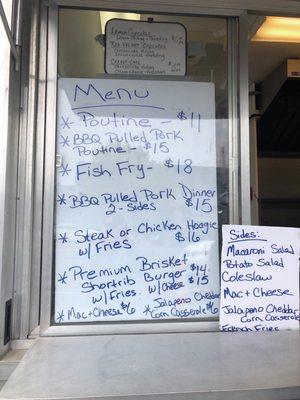 Lemon Cupcakes
Red Velvet Cupcakes
Menu
* Poutine - $11
* BBQ Pulled Pork
Poutine - $15
* Fish Fry - $18
* BBQ Pulled Pork Dinner
2-Sides $15
* Steak or Chicken Hoagie
w/ Fries $16
* Premium Brisket
Shortrib Burger $14
w/ Fries. w/ Cheese $15
* Mac + Cheese $6
* Jalapeno Cheddar
Corn Casserole $6
Sides:
Macaroni Salad
Potato Salad
Coleslaw
Mac + Cheese
Jalapeno Cheddar
Corn Casserole
French Fries